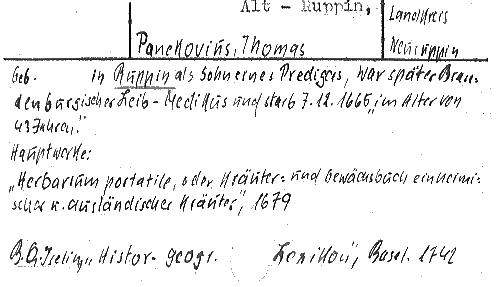 Alt - Ruppin,
Landkreis
Neuruppin
Panckovius, Thomas
Geb. in Ruppin als Sohn eines Predigers, war später Bran-
denburgischer Leib-Medikus und starb 7.12.1665 „im Alter von
43 Jahren."
Hauptwerke:
„Herbarium portatile, oder Kräuter- und Gewächsbuch einheimi-
scher u. ausländischer Kräuter", 1679
B.C. Iselin „Histor. geogr. Lexikon", Basel. 1742